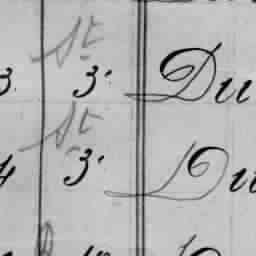 St
3 3. Du
St
4 3. Du